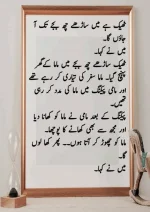 ٹھیک ہے میں ساڑھے چھ بجے تک آ
جاؤں گا۔
میں نے کہا۔
ٹھیک ساڑھے چھ بجے میں ماما کے گھر
پہنچ گیا۔ ماما سفر کی تیاری کر رہے تھے
اور مامی پیکنگ میں ماما کی مدد کر رہی
تھیں۔
پیکنگ کے بعد مامی نے ماما کو کھانا دیا
اور مجھ سے بھی کھانے کا پوچھا۔
ماما کو چھوڑ کر آتا ہوں۔۔ پھر کھانا لوں
گا۔
میں نے کہا۔